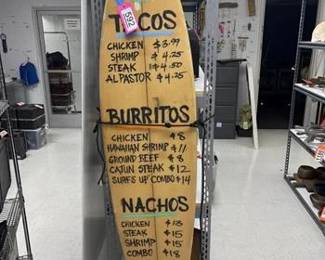 592
TACOS
CHICKEN $3.99
SHRIMP $4.25
STEAK $4.50
AL PASTOR $4.25
BURRITOS
CHICKEN $8
HAWAIIAN SHRIMP $11
GROUND BEEF $8
CAJUN STEAK $12
SURF'S UP COMBO $14
NACHOS
CHICKEN $13
STEAK $15
SHRIMP $15
COMBO $18